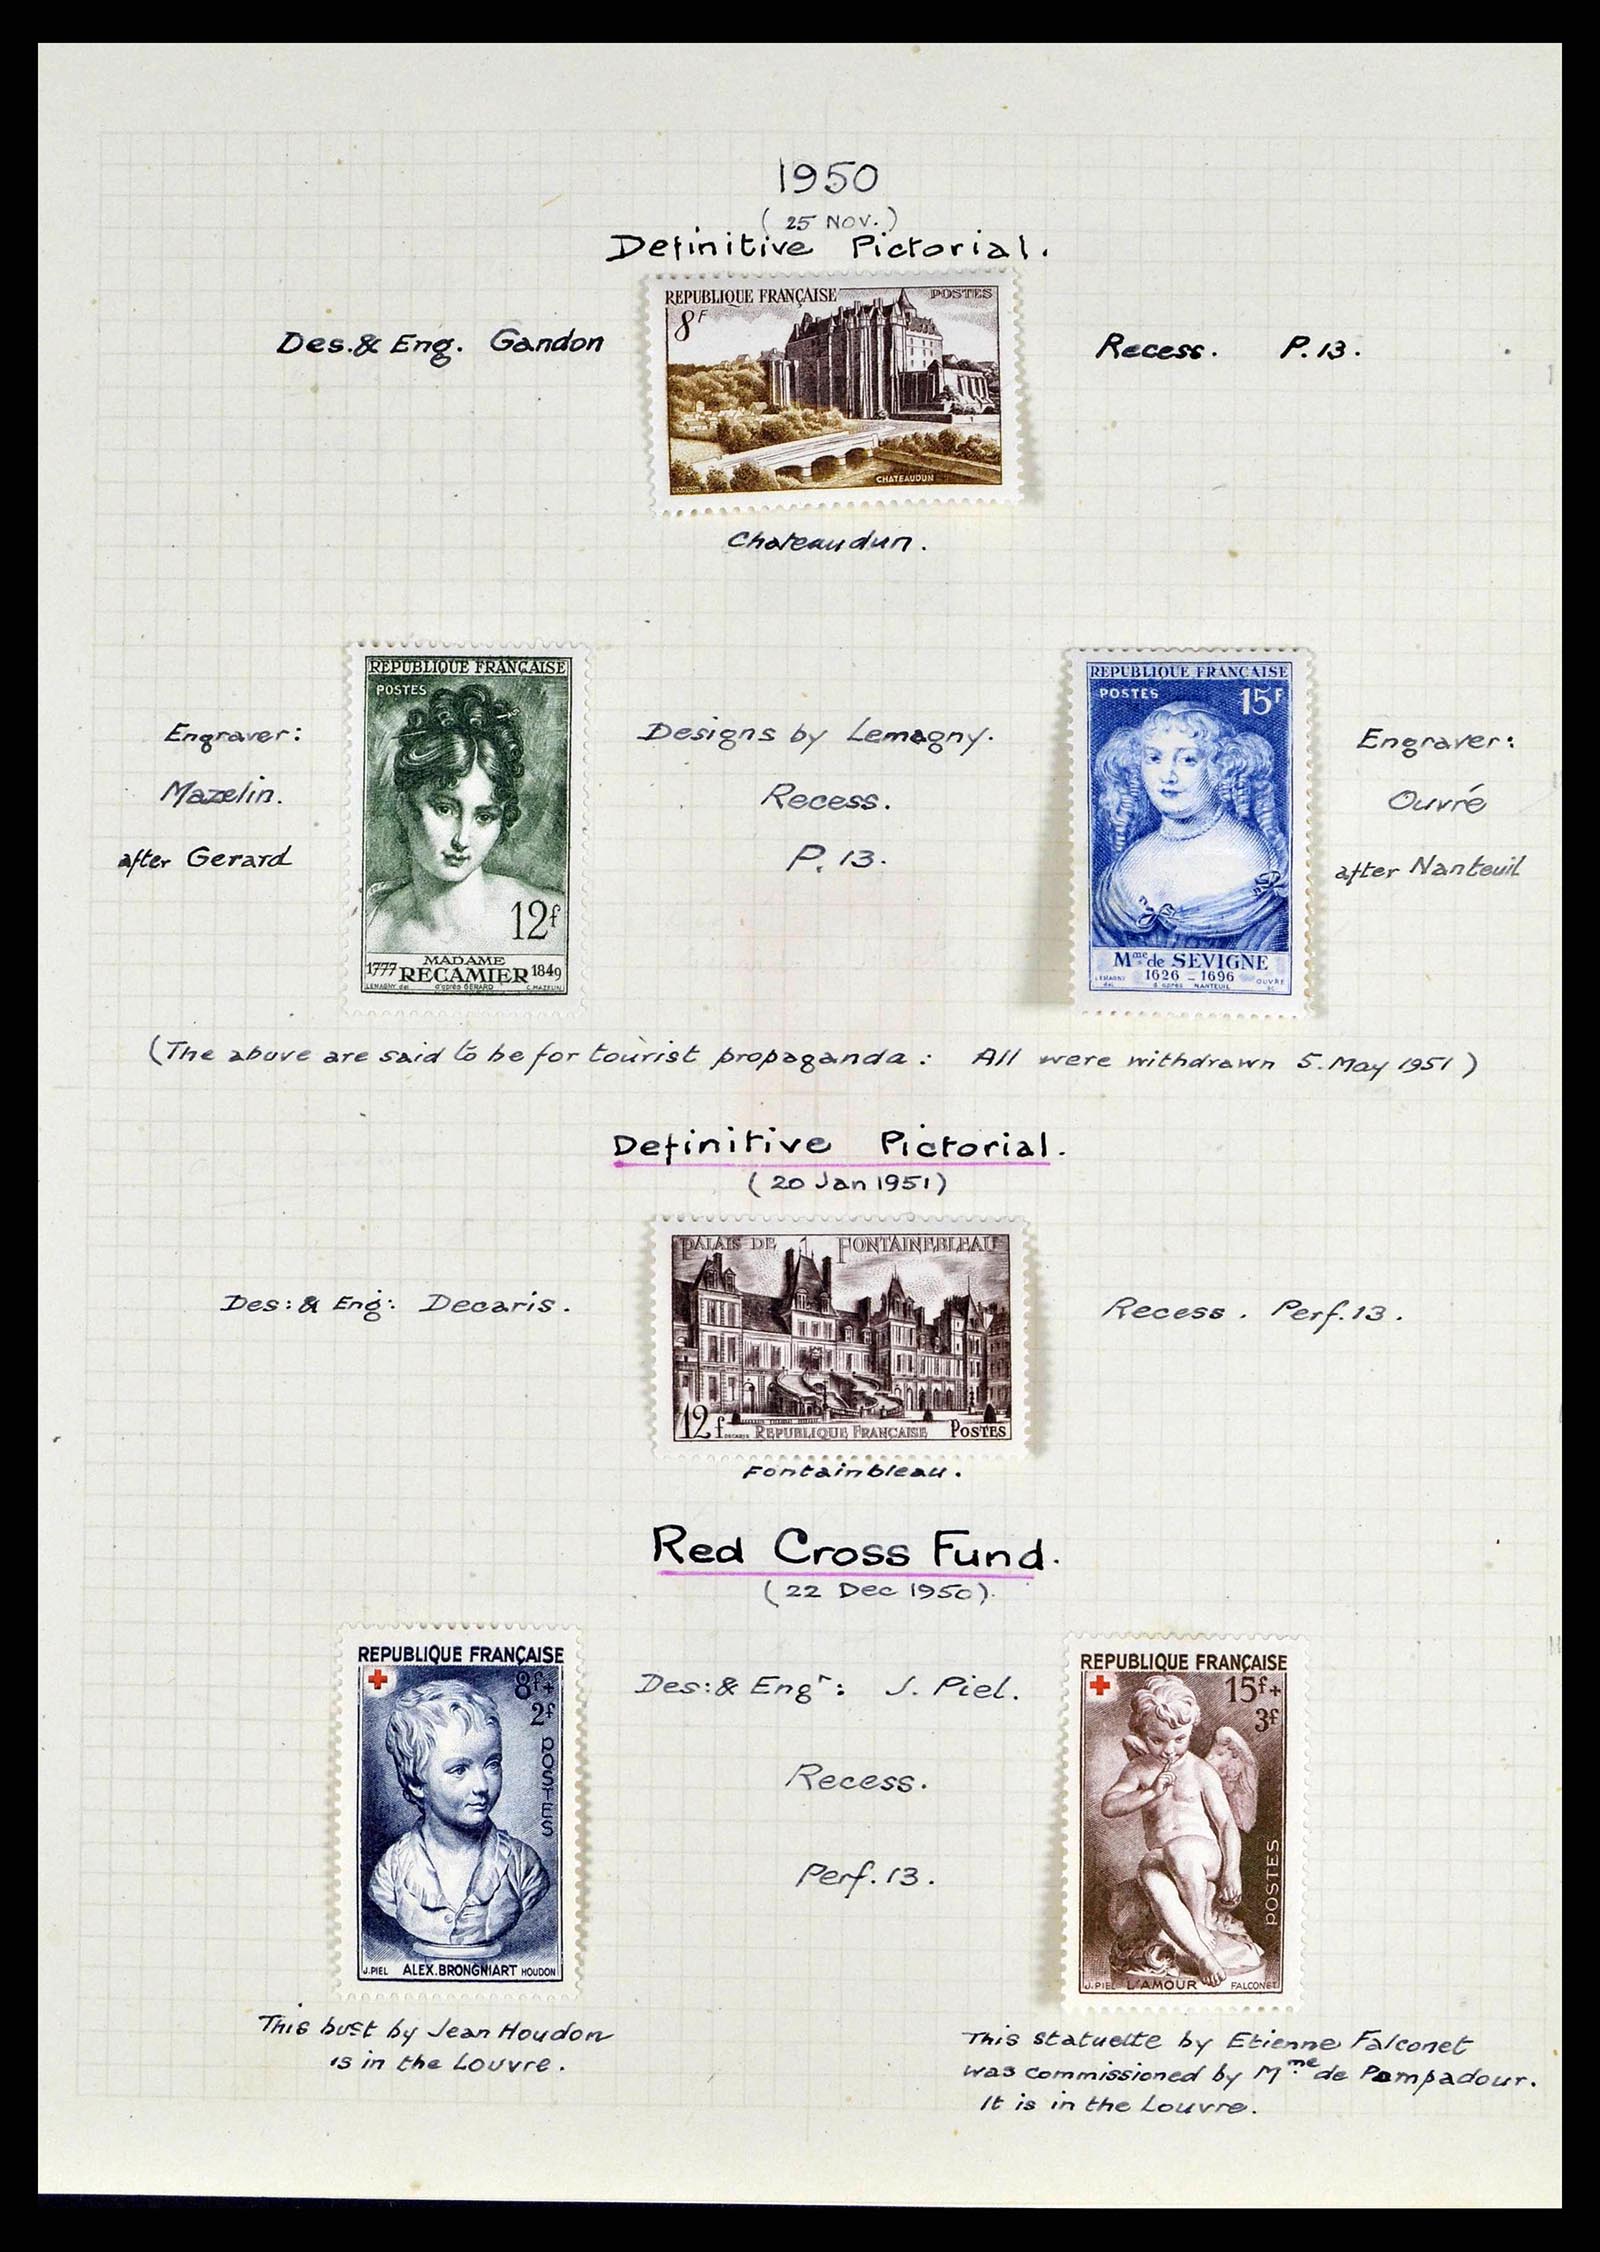 1950
(25 NOV.)
Definitive Pictorial.
Des. & Eng. Gandon
REPUBLIQUE FRANÇAISE POSTES
8F
CHATEAUDUN
Recess. P. 13.
Chateaudun.
Engraver:
Mazelin.
after Gerard
REPUBLIQUE FRANÇAISE
POSTES
12f
MADAME
1777 RECAMIER 1849
LEMAGNY del. d'après GERARD C. MAZELIN
Designs by Lemagny.
Recess.
P. 13.
REPUBLIQUE FRANÇAISE
POSTES 15F
Mme de SEVIGNE
1626 - 1696
LEMAGNY del. d'après NANTEUIL OUVRE sc.
Engraver:
Ouvré
after Nanteuil
(The above are said to be for tourist propaganda: All were withdrawn 5. May 1951)
Definitive Pictorial.
(20 Jan 1951)
Des: & Eng: Decaris.
PALAIS DE FONTAINEBLEAU
12f DECARIS REPUBLIQUE FRANÇAISE POSTES
Recess. Perf. 13.
Fontainbleau.
Red Cross Fund.
(22 Dec 1950).
REPUBLIQUE FRANÇAISE
8f+
2f
POSTES
J. PIEL ALEX. BRONGNIART HOUDON
Des: & Engr: J. Piel.
Recess.
Perf. 13.
REPUBLIQUE FRANÇAISE
15f+
3f
POSTES
J. PIEL L'AMOUR FALCONET
This bust by Jean Houdon
is in the Louvre.
This statuette by Etienne Falconet
was commissioned by Mme. de Pompadour.
It is in the Louvre.